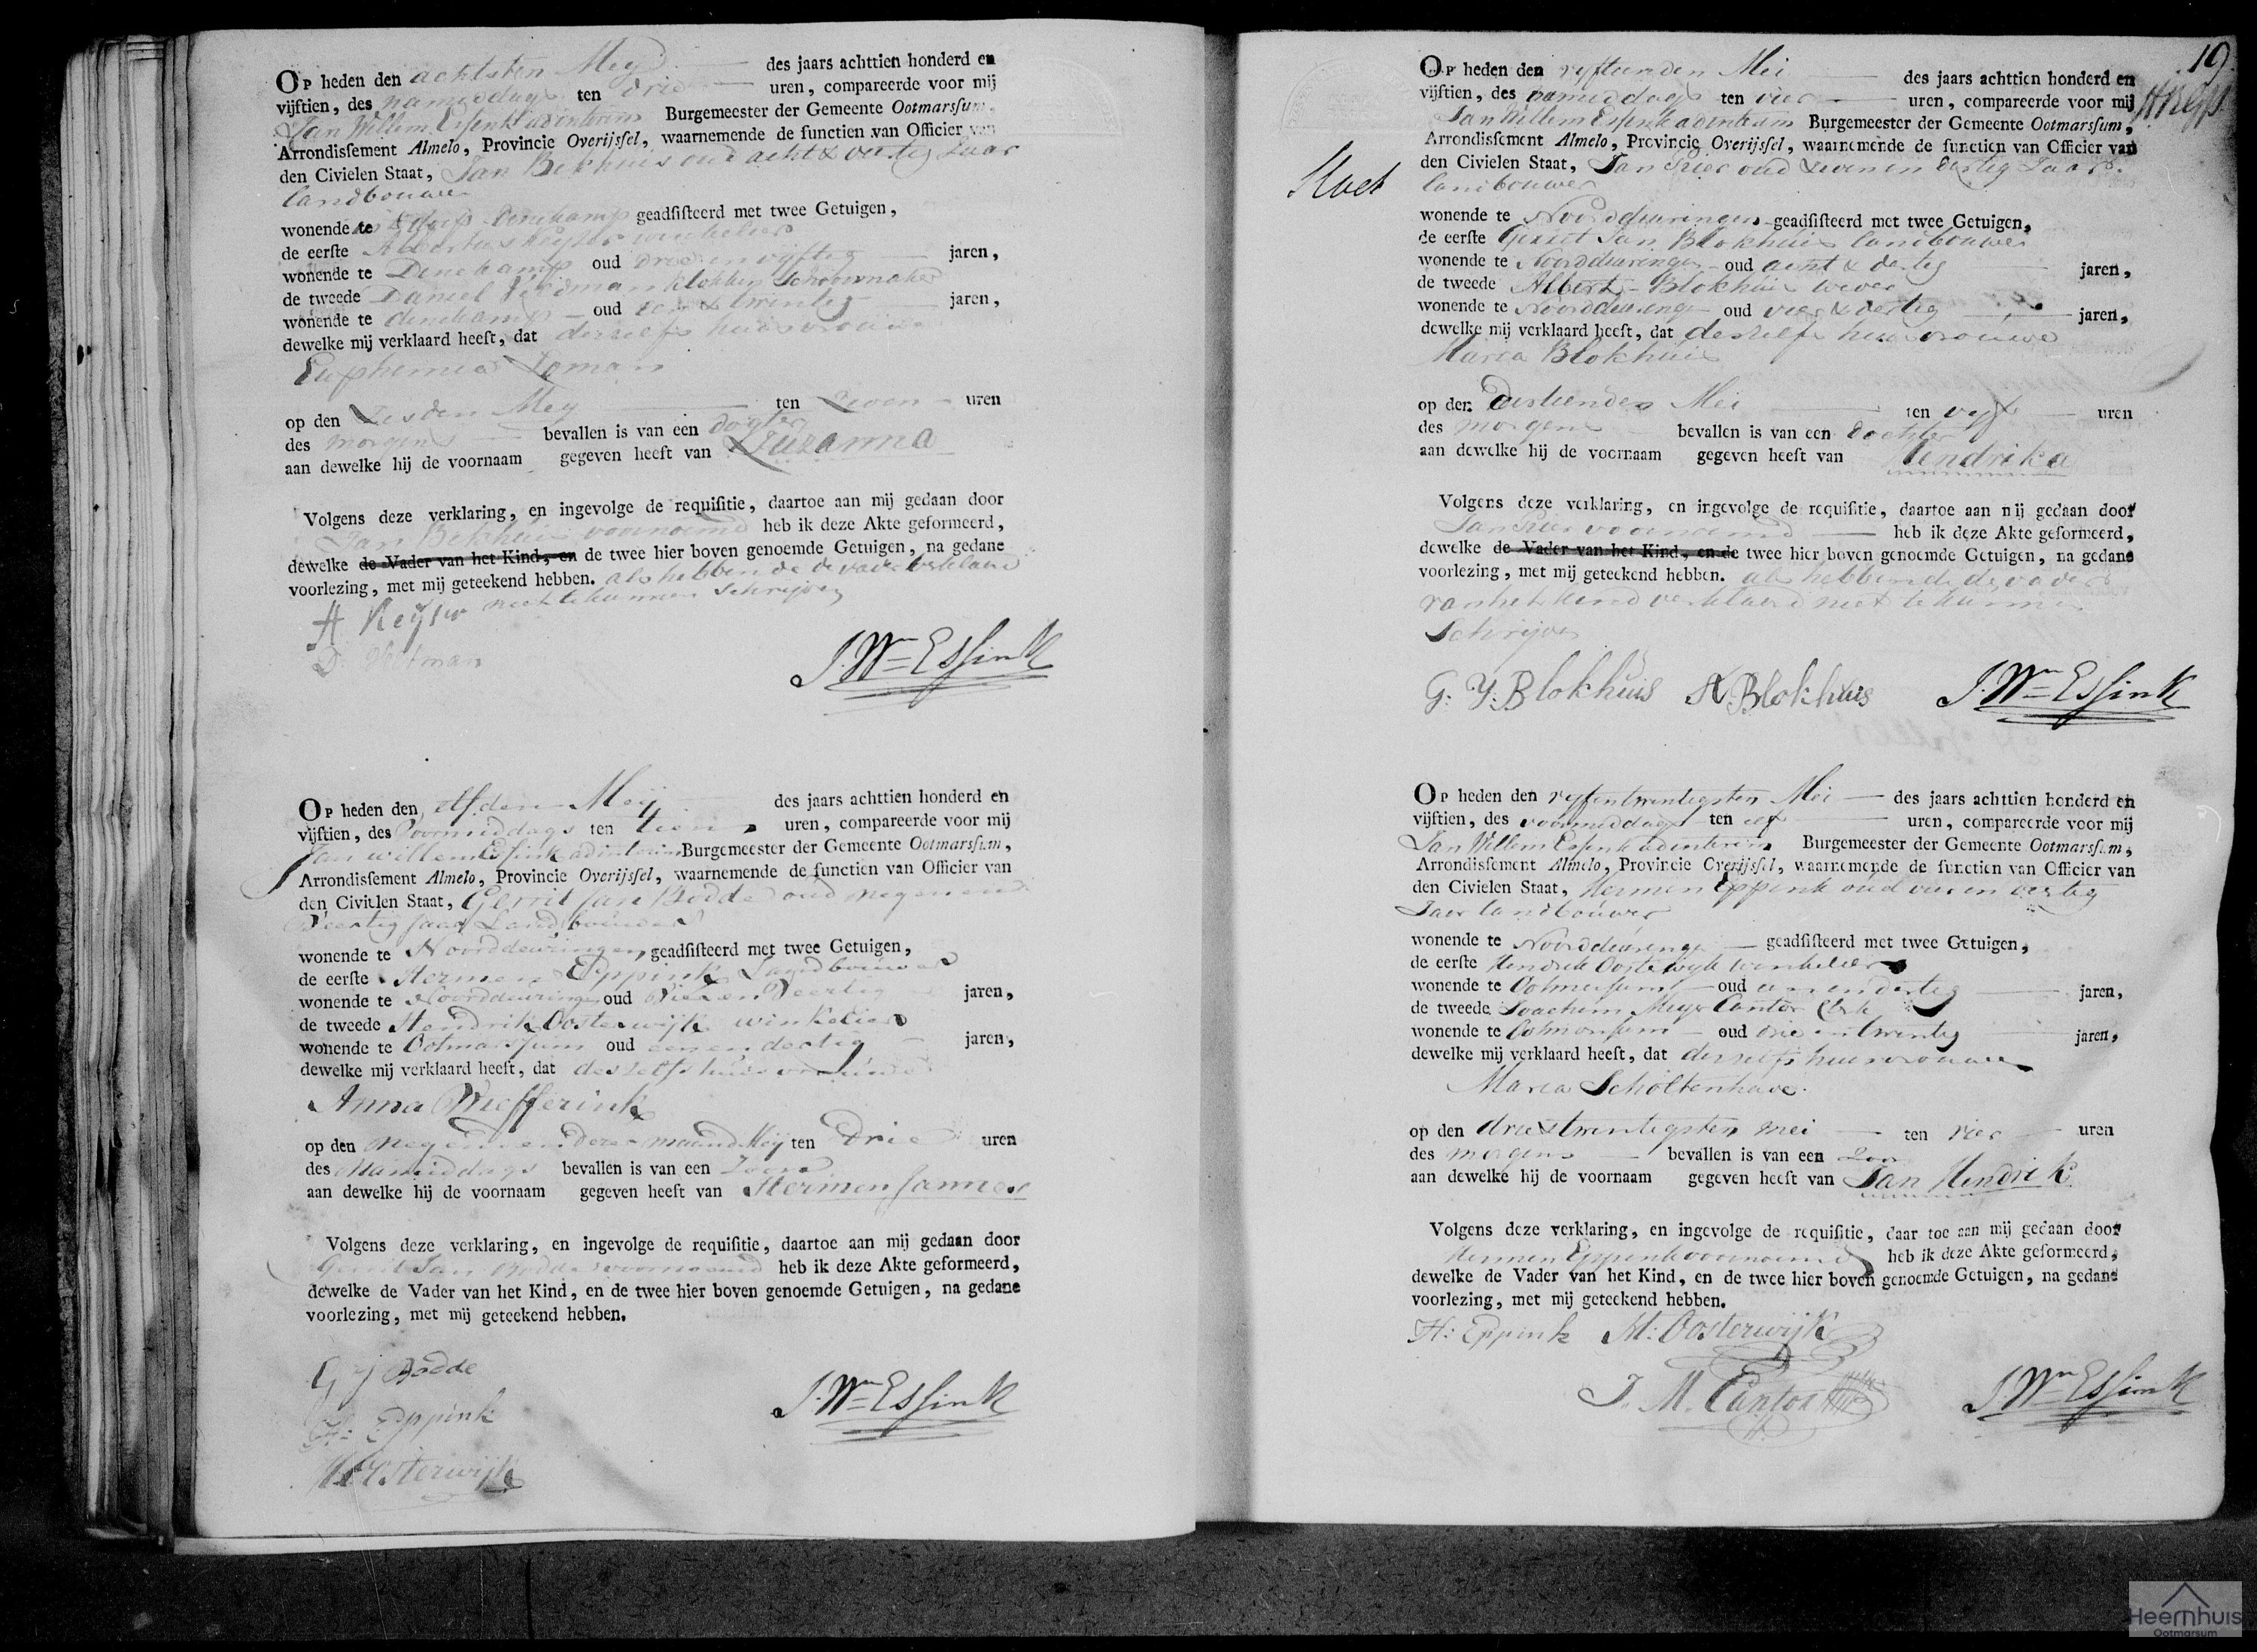 Op heden den achtsten Mey des jaars achttien honderd en
vijftien, des namiddags ten drie uren, compareerde voor mij
Jan Willem Essink adinterim Burgemeester der Gemeente Ootmarsum,
Arrondissement Almelo, Provincie Overijssel, waarnemende de functien van Officier van
den Civielen Staat, Jan Bekhuis oud acht & veertig Jaar
landbouwer
wonende te dorp Denekamp geadsisteerd met twee Getuigen,
de eerste Albertus Keyser winkelier
wonende te Denekamp oud drie en vijftig jaren,
de tweede Daniel klokken Schoenmaker
wonende te denekamp oud twintig jaren,
dewelke mij verklaard heeft, dat deszelfs huisvrouwe
Euphemia Loman
op den Zesden Mey ten Zeven uren
des morgens bevallen is van een dogter
aan dewelke hij de voornaam gegeven heeft van Zuzanna
Volgens deze verklaring, en ingevolge de requisitie, daartoe aan mij gedaan door
Jan Bekhuis voornoemd heb ik deze Akte geformeerd,
dewelke de Vader van het Kind, en de twee hier boven genoemde Getuigen, na gedane
voorlezing, met mij geteekend hebben. als hebbende de vader verklaard
niet te kunnen Schrijven
A Keyser
J. Wm Essink
Op heden den elfden Meij des jaars achttien honderd en
vijftien, des Voormiddags ten tien uren, compareerde voor mij
Jan willem Essink adinterim Burgemeester der Gemeente Ootmarsum,
Arrondissement Almelo, Provincie Overijssel, waarnemende de functien van Officier van
den Civielen Staat, Gerrit Jan Bodde oud negen en
Veertig Jaar Landbouwer
wonende te Noorddeuringen geadsisteerd met twee Getuigen,
de eerste Hermen Eppink Landbouwer
wonende te Noorddeuringe oud Vier en Veertig jaren,
de tweede Hendrik Oosterwijk winkelier
wonende te Ootmarssum oud een en dertig jaren,
dewelke mij verklaard heeft, dat deszelfs huisvrouwe
Anna Wiefferink
op den negenden dezer maand Meij ten Drie uren
des Namiddags bevallen is van een Zoon
aan dewelke hij de voornaam gegeven heeft van Hermen Jannes
Volgens deze verklaring, en ingevolge de requisitie, daartoe aan mij gedaan door
Gerrit Jan Bodde voornoemd heb ik deze Akte geformeerd,
dewelke de Vader van het Kind, en de twee hier boven genoemde Getuigen, na gedane
voorlezing, met mij geteekend hebben.
G J Bodde
J. Wm Essink
H: Eppink
H Oosterwijk
19.
Op heden den vyftienden Mei des jaars achttien honderd en
vijftien, des namiddags ten vier uren, compareerde voor mij
Jan Willem Essink adinterim Burgemeester der Gemeente Ootmarsum,
Arrondissement Almelo, Provincie Overijssel, waarnemende de functien van Officier van
den Civielen Staat, Jan oud zeven en dertig Jaar
landbouwer
wonende te Noorddeuringen geadsisteerd met twee Getuigen,
de eerste Gerrit Jan Blokhuis landbouwer
wonende te Noorddeuringen oud acht & dertig jaren,
de tweede Albert Blokhuis wever
wonende te Noorddeuringe oud vier & dertig jaren,
dewelke mij verklaard heeft, dat deszelfs huisvrouwe
Maria Blokhuis
op den dertienden Mei ten vyf uren
des morgens bevallen is van een dochter
aan dewelke hij de voornaam gegeven heeft van Hendrika
Volgens deze verklaring, en ingevolge de requisitie, daartoe aan mij gedaan door
Jan voornoemd heb ik deze Akte geformeerd,
dewelke de Vader van het Kind, en de twee hier boven genoemde Getuigen, na gedane
voorlezing, met mij geteekend hebben. als hebbende de vader
van het kind verklaard niet te kunnen
Schrijven
G: J: Blokhuis A Blokhuis J. Wm Essink
Op heden den vyfentwintigsten Mei des jaars achttien honderd en
vijftien, des voormiddags ten elf uren, compareerde voor mij
Jan Willem Essink adinterim Burgemeester der Gemeente Ootmarsum,
Arrondissement Almelo, Provincie Overijssel, waarnemende de functien van Officier van
den Civielen Staat, Hermen Eppink oud vier en veertig
Jaar landbouwer
wonende te Noorddeuringe geadsisteerd met twee Getuigen,
de eerste Hendrik Oosterwyk winkelier
wonende te Ootmarsum oud een en dertig jaren,
de tweede Joachim Meyer Cantor
wonende te Ootmarsum oud drie en twintig jaren,
dewelke mij verklaard heeft, dat deszelfs huisvrouwe
Maria Scholtenhave
op den drie & twintigsten mei ten vier uren
des morgens bevallen is van een Zoon
aan dewelke hij de voornaam gegeven heeft van Jan Hendrik
Volgens deze verklaring, en ingevolge de requisitie, daar toe aan mij gedaan door
Hermen Eppink voornoemd heb ik deze Akte geformeerd,
dewelke de Vader van het Kind, en de twee hier boven genoemde Getuigen, na gedane
voorlezing, met mij geteekend hebben.
H: Eppink H: Oosterwijk
J. M. Cantor J Wm Essink
Heemhuis
Ootmarsum